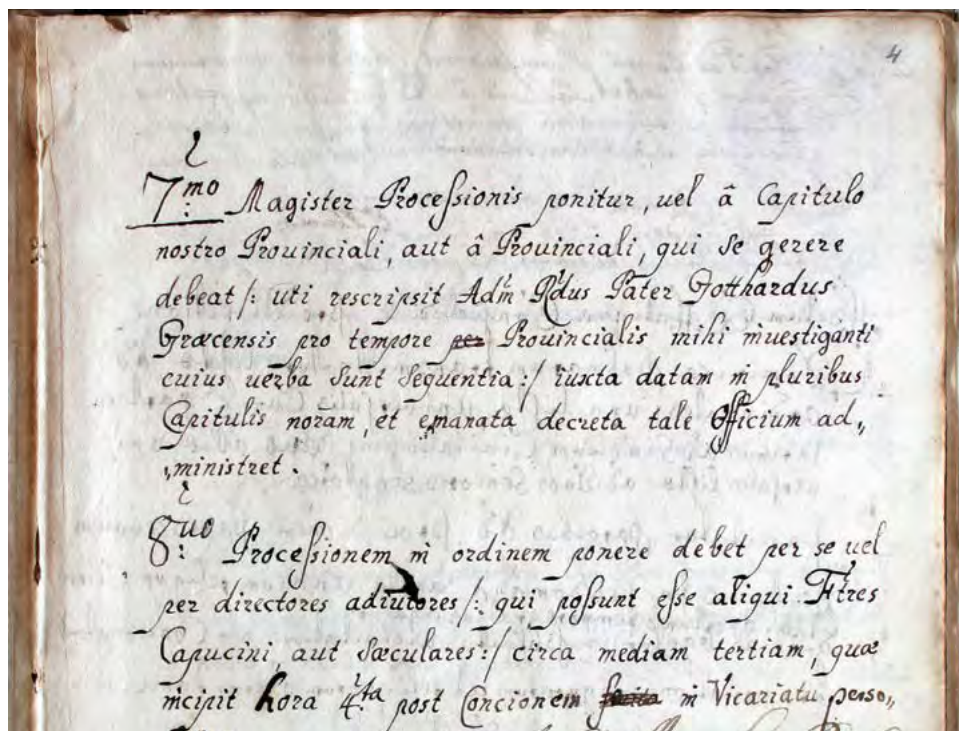 4
7mo Magister Processionis ponitur, uel â Capitulo
nostro Prouinciali, aut â Prouinciali, qui se gerere
debeat /: uti rescripsit Adm Rdus Pater Gotthardus
Græcensis pro tempore per Prouincialis mihi inuestiganti
cuius uerba sunt sequentia :/ iuxta datam in pluribus
Capitulis noram, et emanata decreta tale Officium ad„
„ministret.
8uo Processionem in ordinem ponere debet per se uel
per directores adiutores /: qui possunt esse aliqui Ftres
Capucini, aut sæculares :/ circa mediam tertiam, quæ
incipit hora 4ta post Concionem in Vicariatu perso„